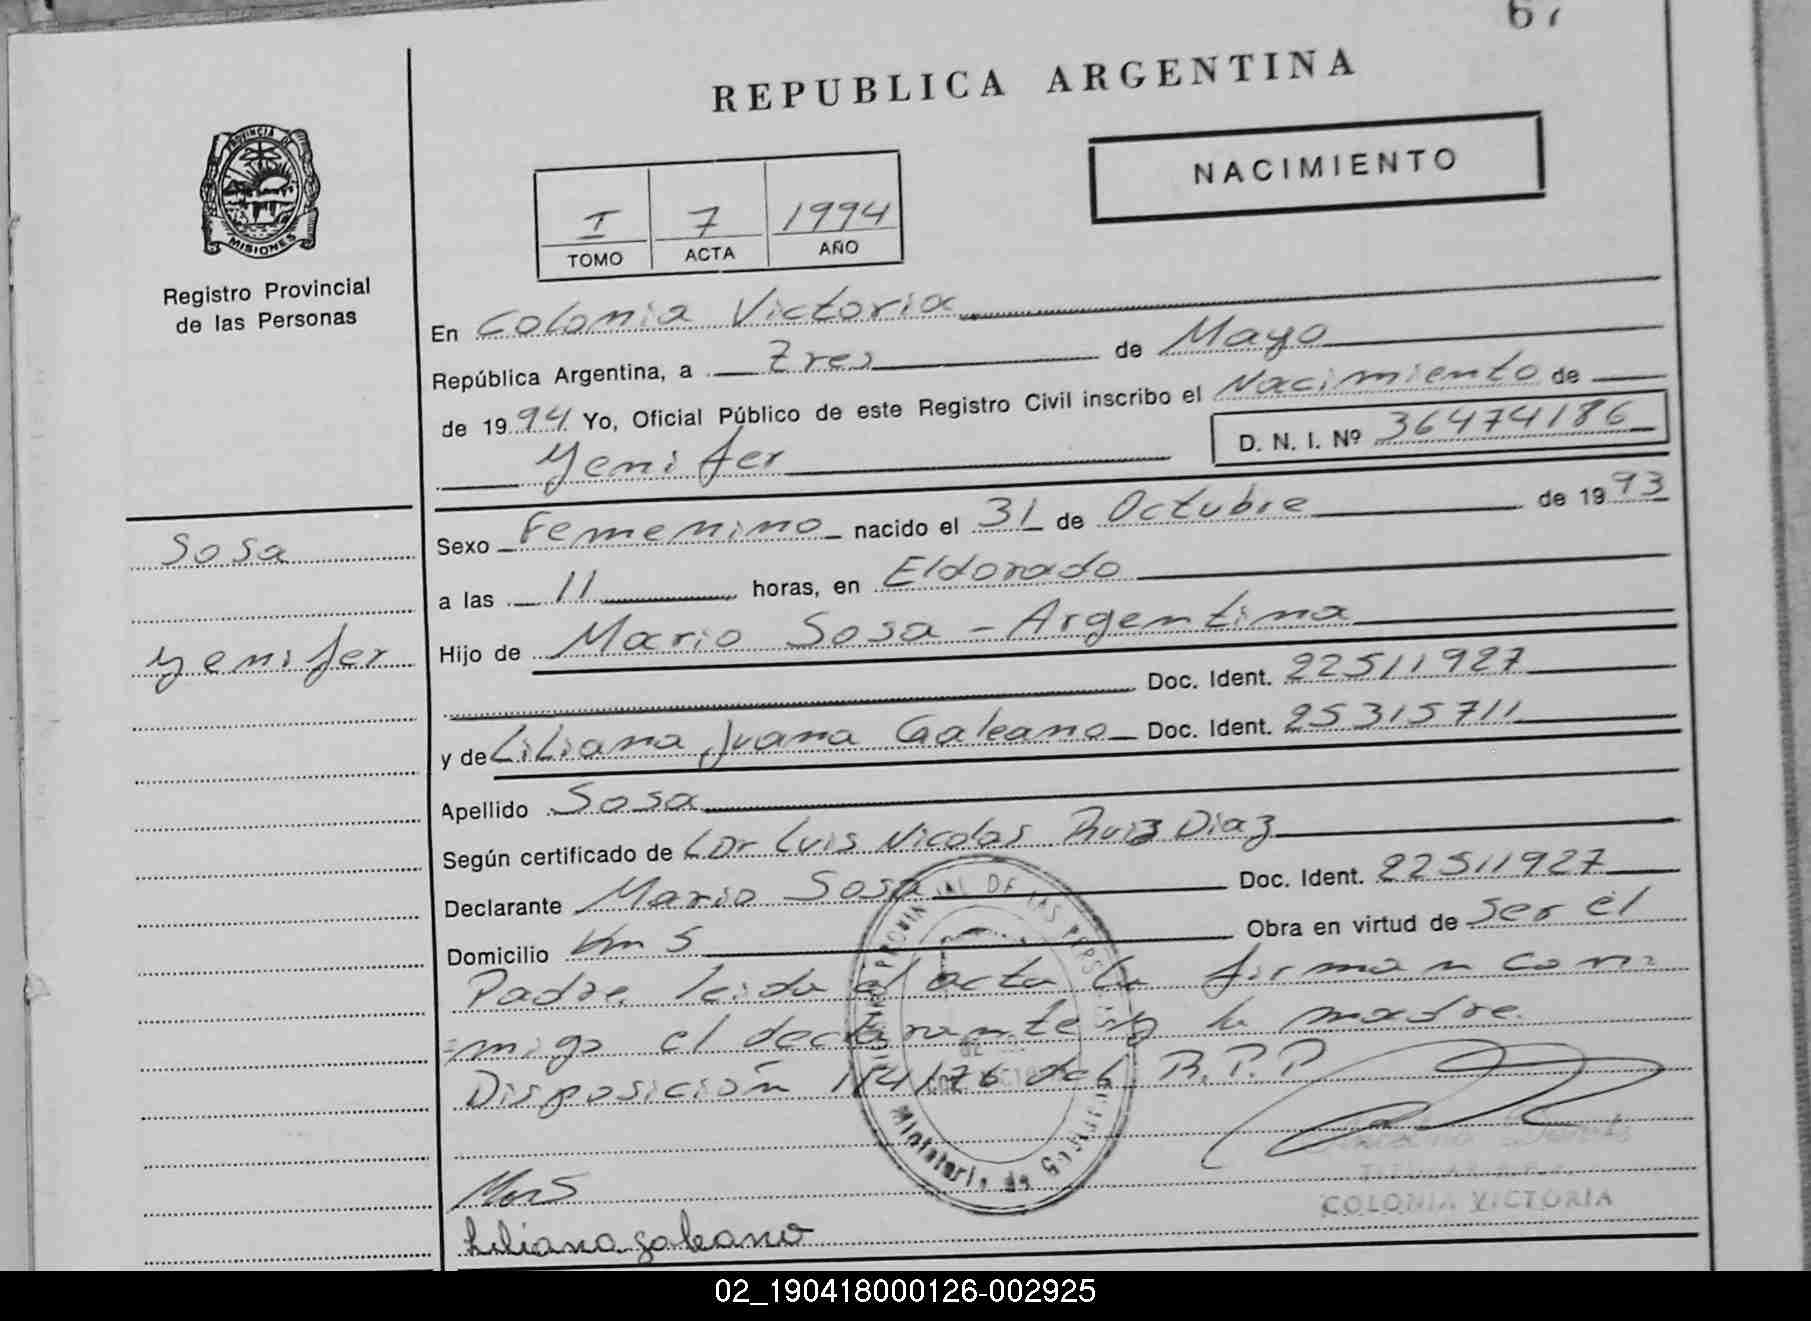 67
REPUBLICA ARGENTINA
NACIMIENTO
PROVINCIA DE
MISIONES
Registro Provincial
de las Personas
I 7 1994
TOMO ACTA AÑO
En Colonia Victoria
República Argentina, a Tres de Mayo
de 1994 Yo, Oficial Público de este Registro Civil inscribo el Nacimiento de
Yenifer D. N. I. Nº 36474186
Sosa
Yenifer
Sexo Femenino nacido el 31 de Octubre de 1993
a las 11 horas, en Eldorado
Hijo de Mario Sosa - Argentina
Doc. Ident. 22511927
y de Liliana Juana Galeano Doc. Ident. 25315711
Apellido Sosa
Según certificado de Dr Luis Nicolas Ruiz Diaz
Declarante Mario Sosa Doc. Ident. 22511927
Domicilio Km 5 Obra en virtud de ser el
Padre, leida el acta la firman con
migo el declarante y la madre.
Disposición 114/76 del R.P.P
Ministerio de Gobierno
COLONIA VICTORIA
Liliana galeano
02_190418000126-002925